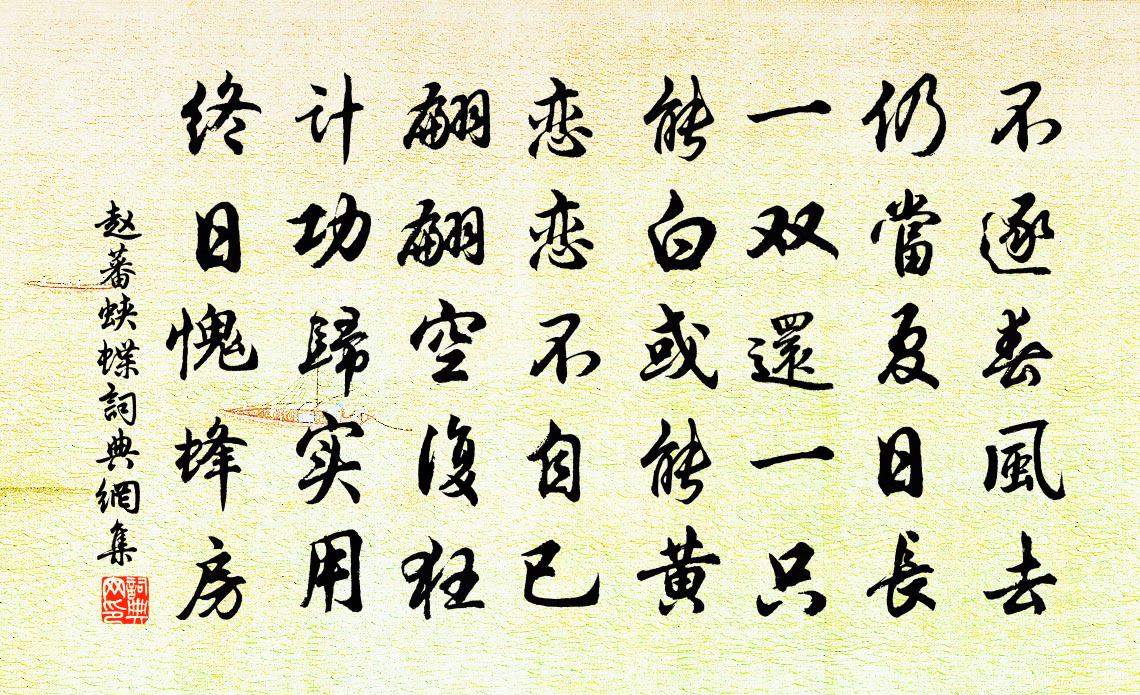 不逐春風去
仍當夏日長
一双還一只
能白或能黄
恋恋不自已
翩翩空復狂
計功歸实用
终日愧蜂房
赵蕃蛱蝶詞典網集
詞典网印